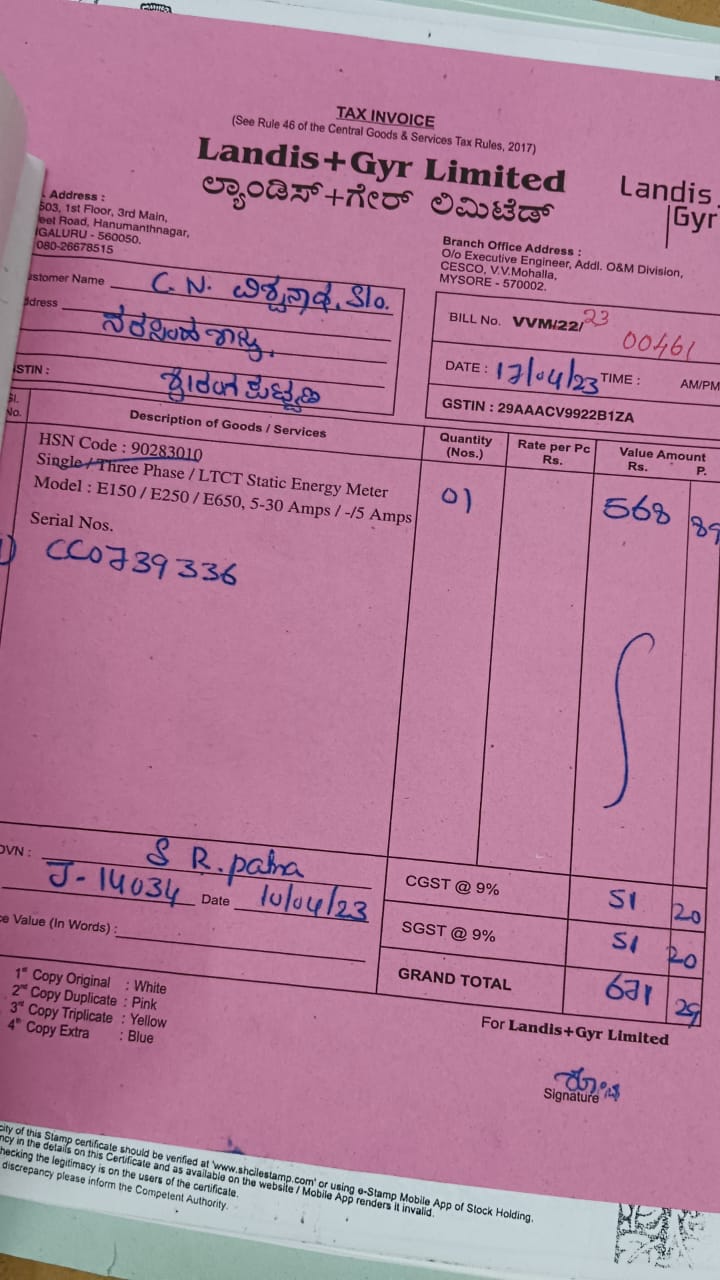 TAX INVOICE
(See Rule 46 of the Central Goods & Services Tax Rules, 2017)
Landis+Gyr Limited
ಲ್ಯಾಂಡಿಸ್+ಗೇರ್ ಲಿಮಿಟೆಡ್
Landis
Gyr
Address :
503, 1st Floor, 3rd Main,
Road, Hanumanthnagar,
GALURU - 560050.
080-26678515
Branch Office Address :
O/o Executive Engineer, Addl. O&M Division,
CESCO, V.V.Mohalla,
MYSORE - 570002.
ustomer Name C. N. ವಿಶ್ವನಾಥ, S/o.
ddress
BILL No. VVM/22/23 00461
DATE : 17/04/23 TIME : AM/PM
STIN :
GSTIN : 29AAACV9922B1ZA
Sl. No. Description of Goods / Services Quantity (Nos.) Rate per Pc Rs. Value Amount Rs. P.
HSN Code : 90283010
Single / Three Phase / LTCT Static Energy Meter
Model : E150 / E250 / E650, 5-30 Amps / -/5 Amps 01 568 89
Serial Nos.
1) CC0739336
OVN : S R. patna
J-14034 Date 10/04/23
CGST @ 9% 51 20
SGST @ 9% 51 20
e Value (In Words) :
GRAND TOTAL 671 29
1st Copy Original : White
2nd Copy Duplicate : Pink
3rd Copy Triplicate : Yellow
4th Copy Extra : Blue
For Landis+Gyr Limited
Signature
city of this Stamp certificate should be verified at 'www.shcilestamp.com' or using e-Stamp Mobile App of Stock Holding.
ncy in the details on this Certificate and as available on the website / Mobile App renders it invalid.
hecking the legitimacy is on the users of the certificate.
discrepancy please inform the Competent Authority.